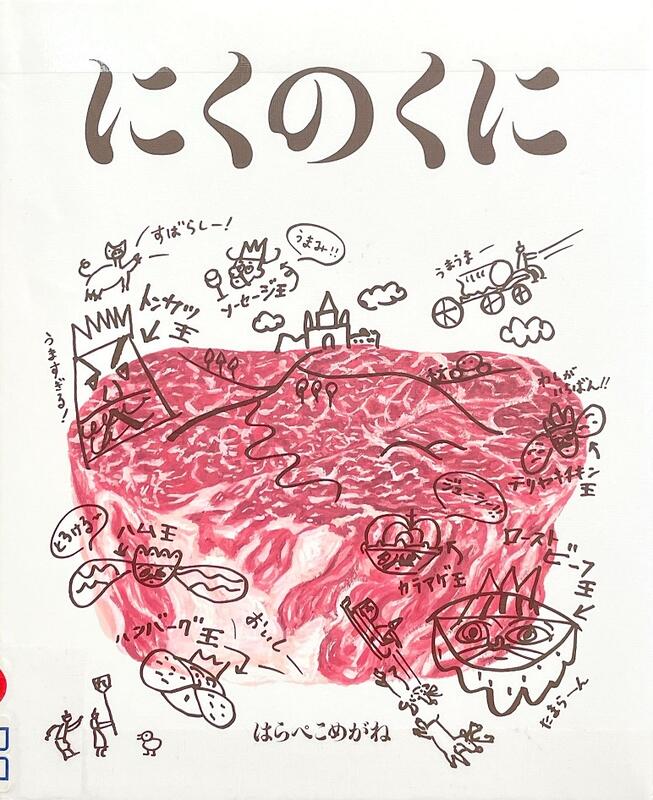 にくのくに
すばらしー!
うまみ!!
ソーセージ王
うまうまー
トンカツ
王
うますぎる!
わしが
いちばん!!
テリヤキチキン
王
ジューシー!!
とろける〜
ハム王
カラアゲ王
ロースト
ビーフ
王
ハンバーグ王
おいしー
たまらーん
肉
はらぺこめがね